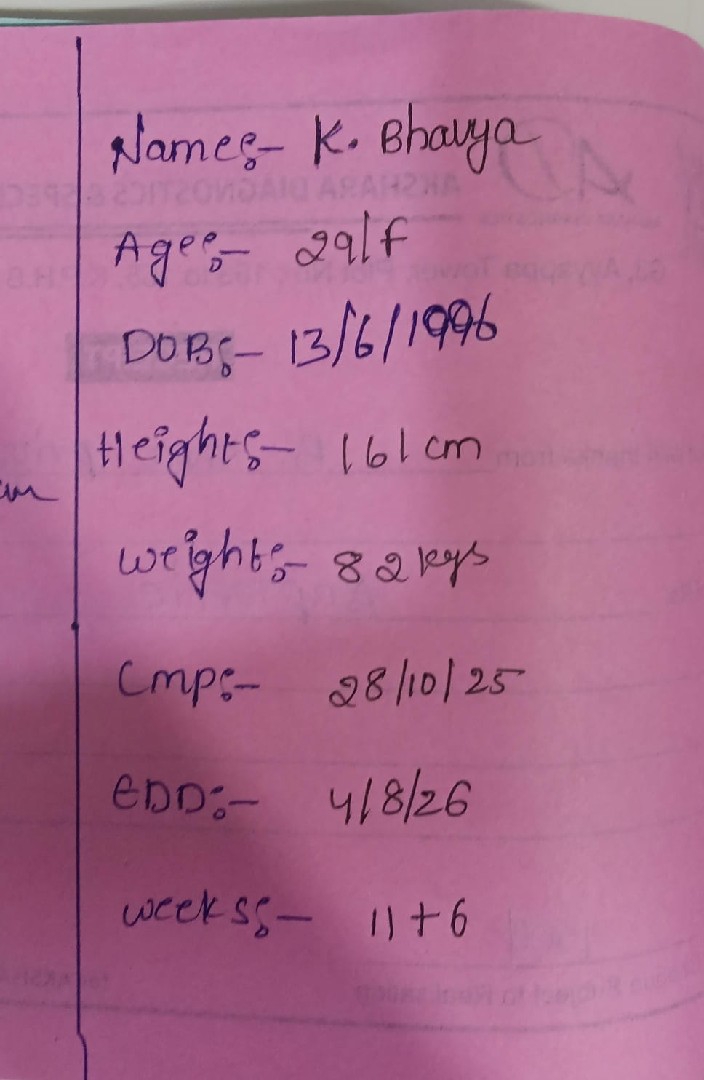 Name:- K. Bhavya
Age:- 29/F
DOB:- 13/6/1996
Height:- 161 cm
Weight:- 82 kgs
Lmp:- 28/10/25
EDD:- 4/8/26
weeks:- 11+6